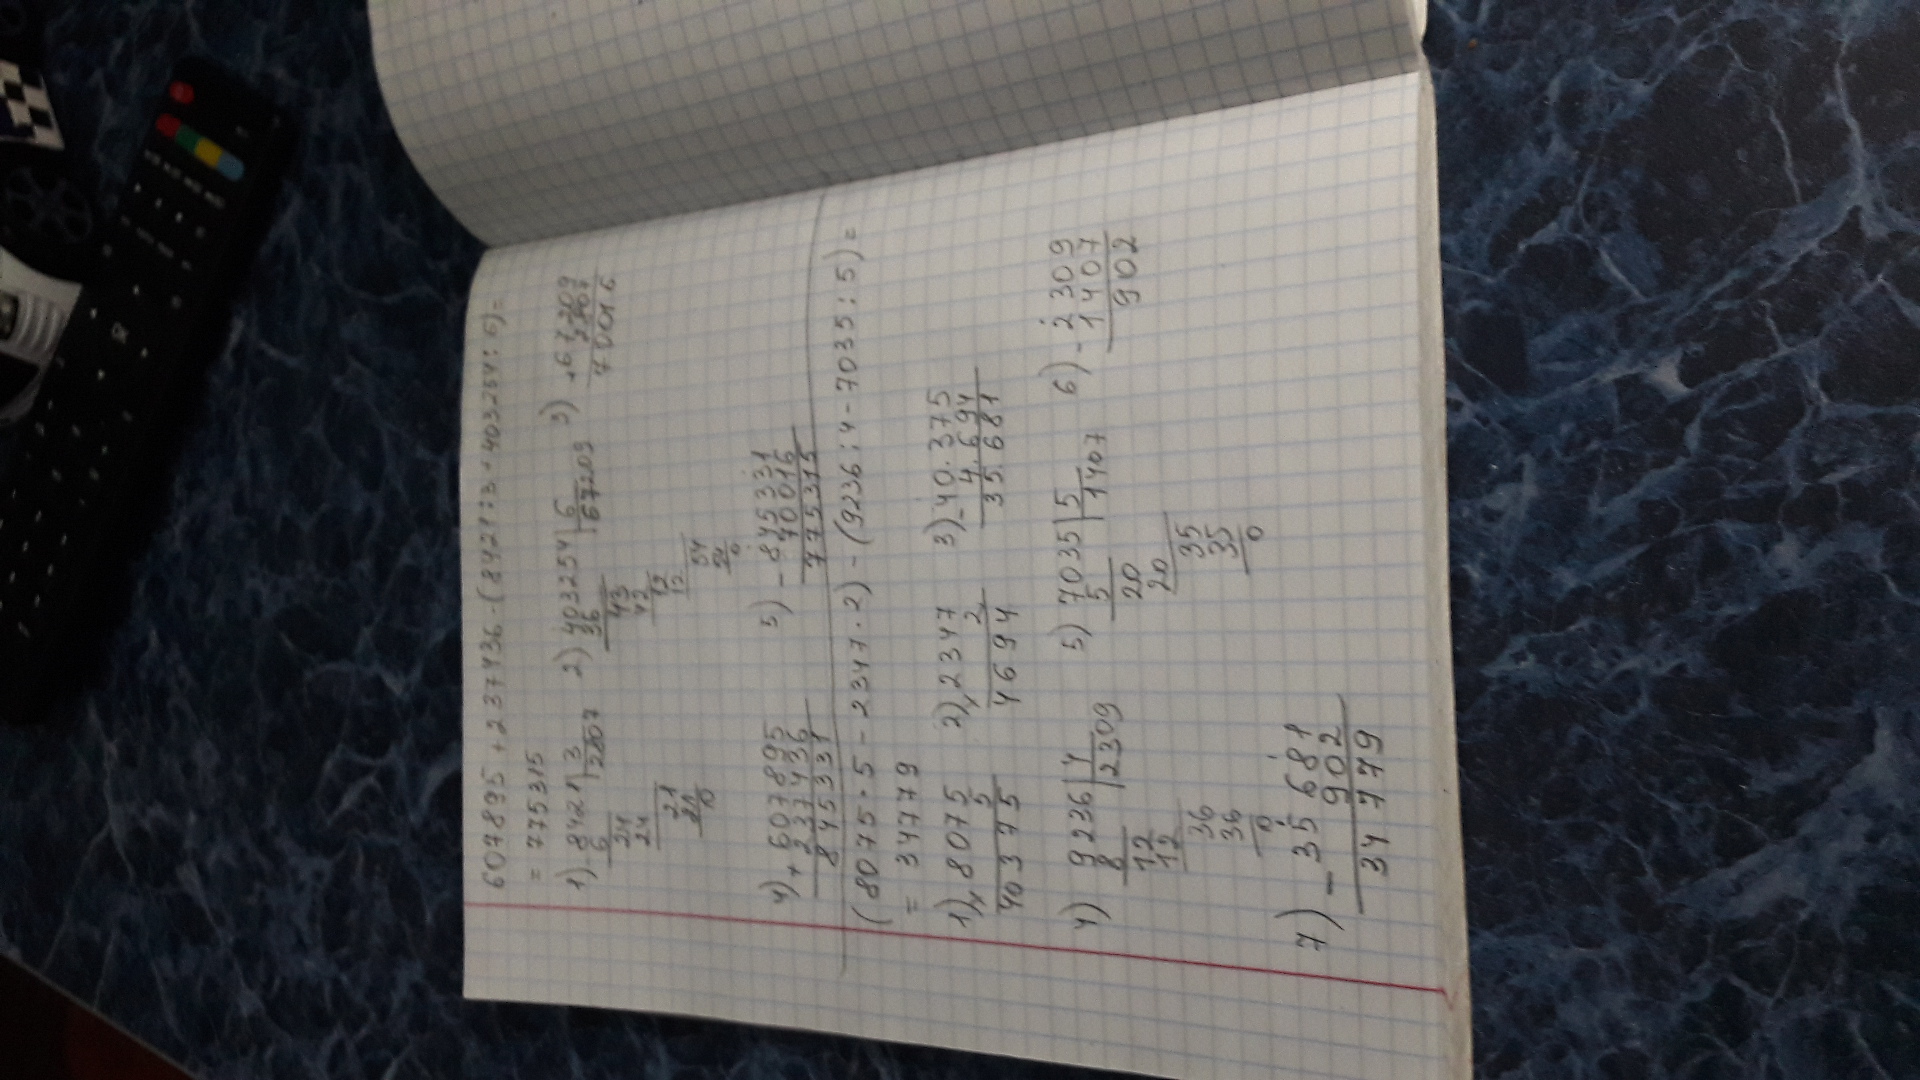 607895 + 237436 - (8421 : 3 + 403254 : 6) =
= 775315
1) 8421 | 3 2) 403254 | 6 3) + 67209
6 2807 36 67209 2807
24 43 70016
24 42
21 12
21 12
0 54
54
0
4) + 607895 5) - 845331
237436 70016
845331 775315
(8075 · 5 - 2347 · 2) - (9236 : 4 - 7035 : 5) =
= 34779
1) x 8075 2) x 2347 3) - 40.375
5 2 4.694
40375 4694 35681
4) 9236 | 4 5) 7035 | 5 6) - 2309
8 2309 5 1407 1407
12 20 902
12 20
36 35
36 35
0 0
7) - 35681
902
34779
OK